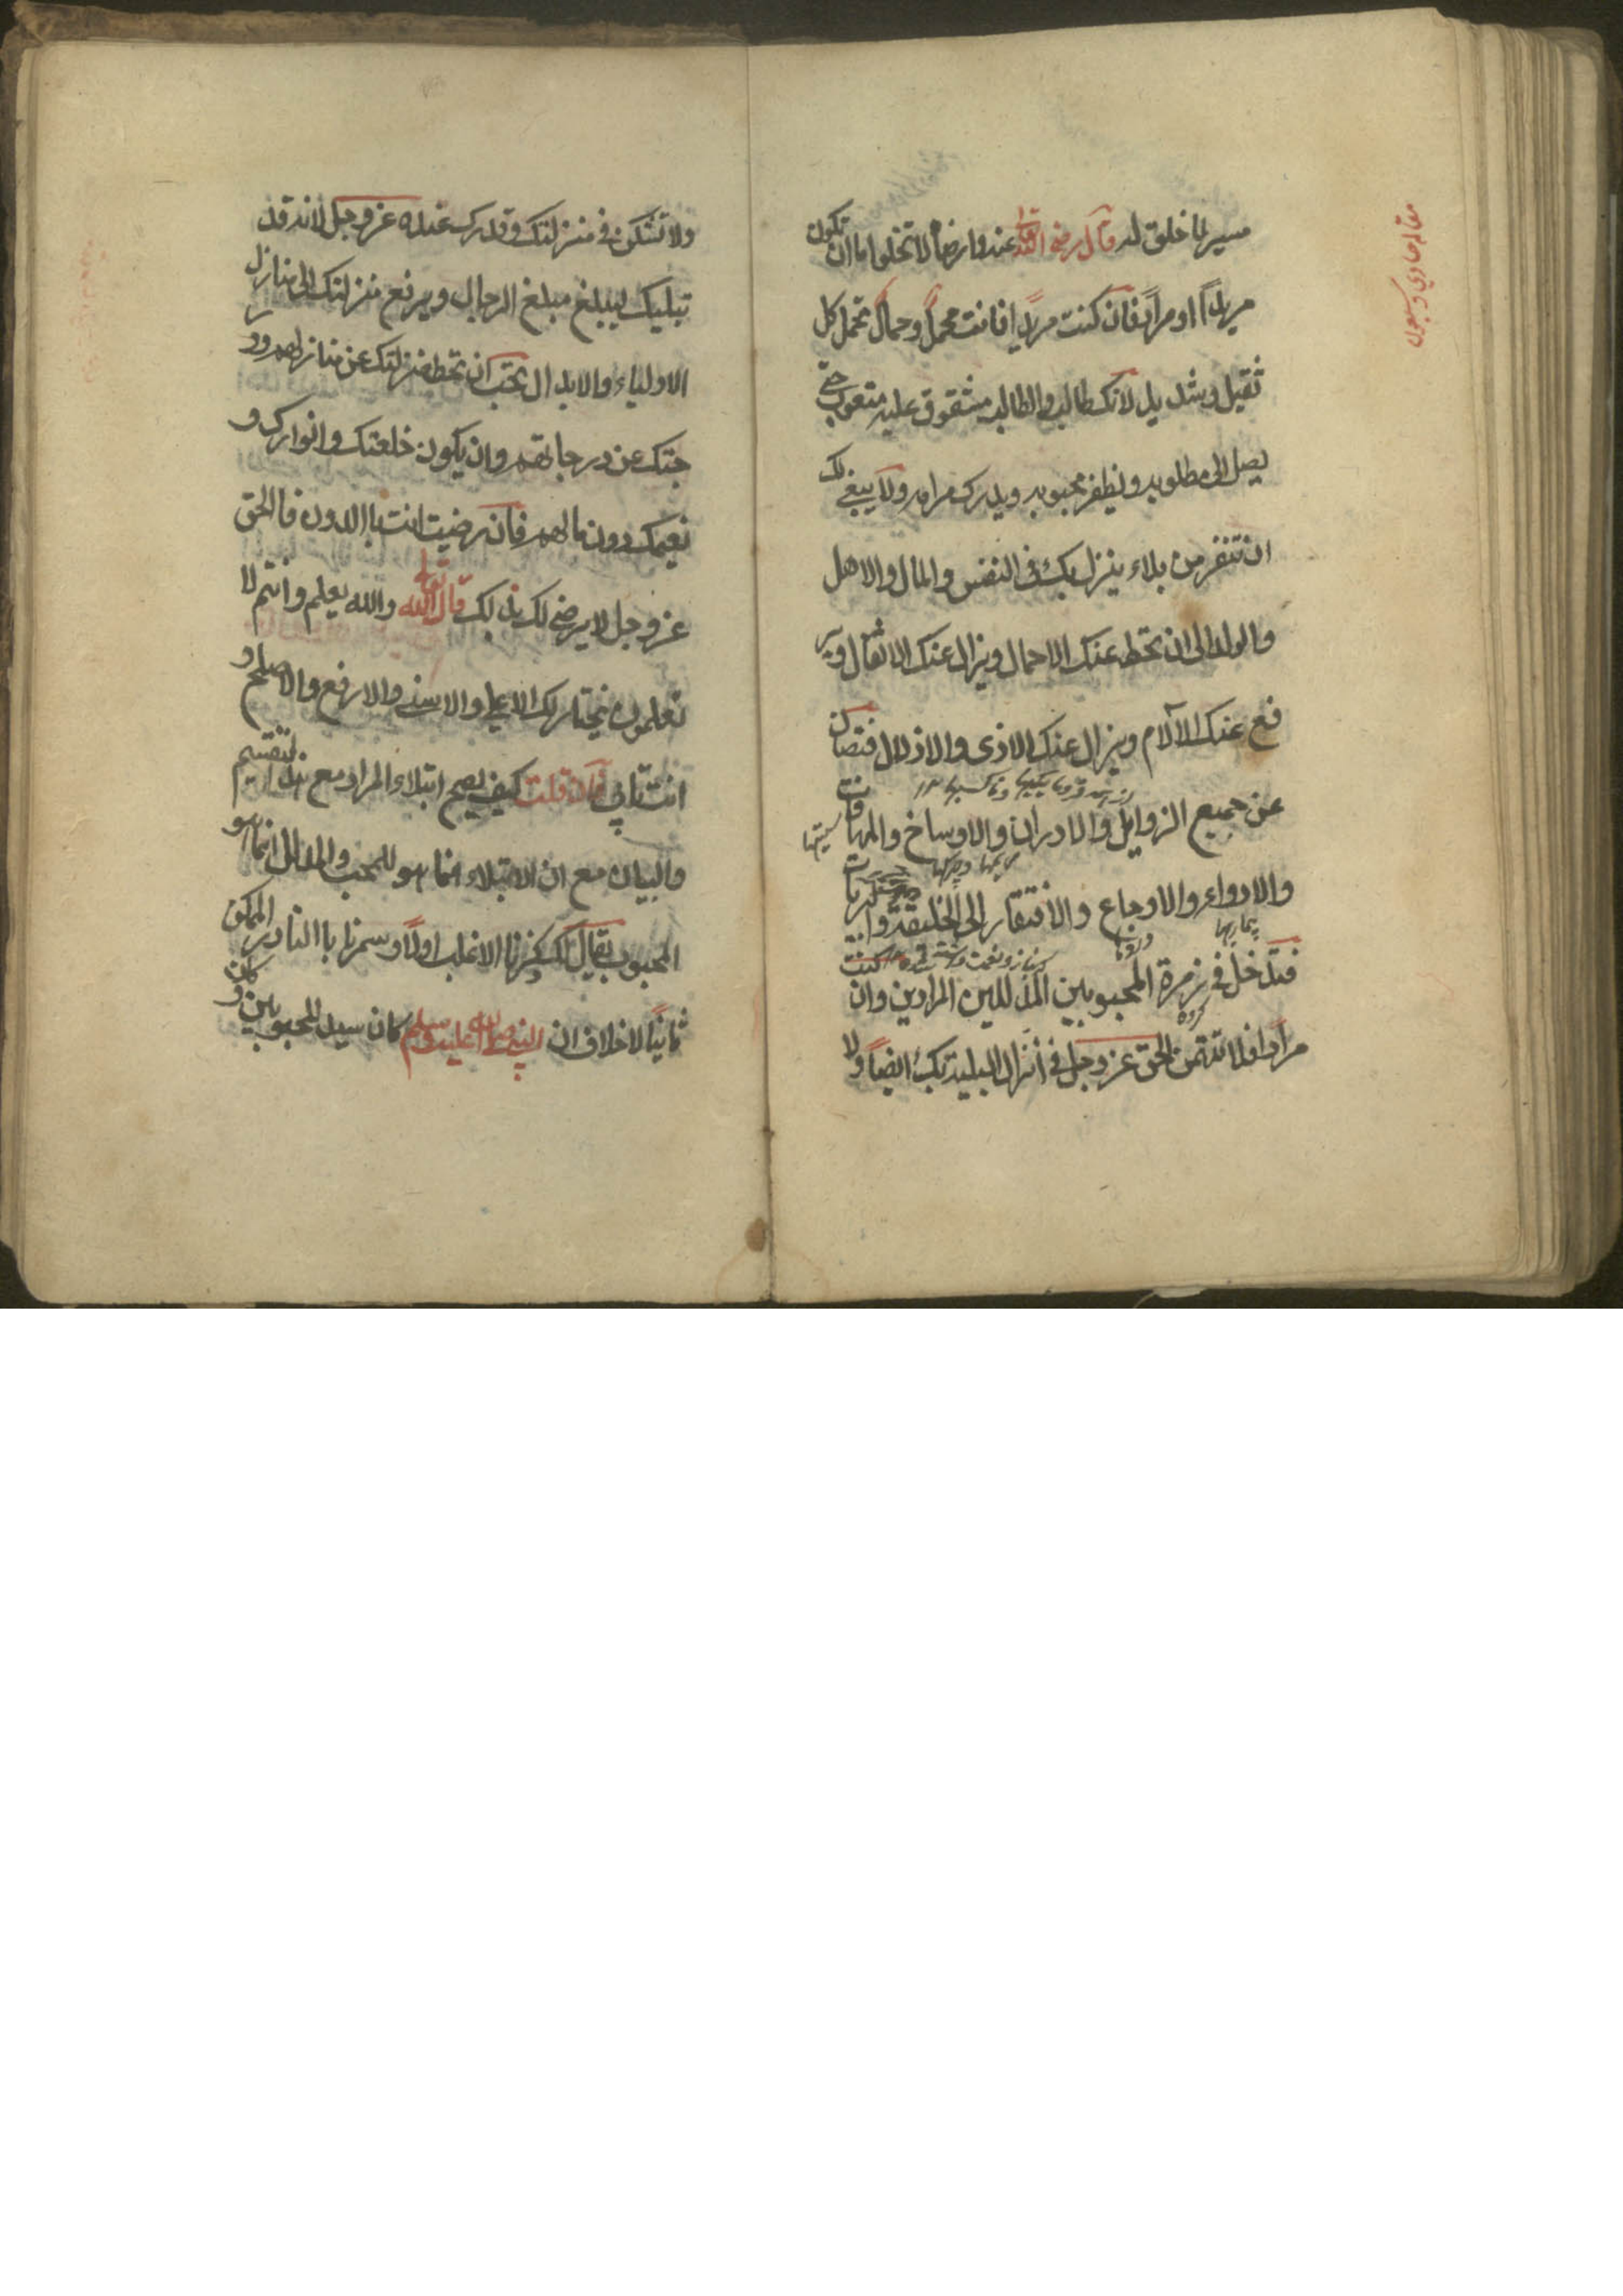 مقاله حادي و سبعون
ميسر لما خلق له قال رضي الله تعالى عنه وارضاه لا تخلوا اما ان تكون
مريداً او مراداً فان كنت مريداً فانت محمل وحمال تحمل كل
ثقيل وشديد لانك طالب والطالب مشقوق عليه متعوب حتى
يصل الى مطلوبه ويظفر محبوبه ويدرك مرامه ولا ينبغي لك
ان تنفر من بلاء ينزل بك في النفس والمال والاهل
والولد الى ان تحط عنك الاحمال ويزال عنك الاثقال وير
فع عنك الآلام ويزال عنك الاذى والاذلال فتصان
عن جميع الرزايل والادران والاوساخ والمهانات
والادواء والاوجاع والافتقار الى الخليقة والبريات
بيماريها
فتدخل في زمرة المحبوبين المدللين المرادين وان كنت
گروه
مراداً فلا تتهمن الحق عز وجل في انزال البلية بك ايضاً ولا
ولا تشكن في منزلتك وقدرك عنده عز وجل لانه قد
تبليك ليبلغ مبلغ الرجال ويرفع منزلتك الى منازل
الاولياء والابدال تحب ان تحط منزلتك عن منازلهم ودر
جتك عن درجاتهم وان يكون خلعتك وانوارك و
نعيمك دون مالهم فان رضيت انت باالدون فالحق
عز وجل لا يرضى لك بذلك قال الله تعالى والله يعلم وانتم لا
تعلمون يختار لك الاعلى والاسنى والارفع والاصلح و
انت تابى فان قلت كيف يصح ابتلاء المراد مع هذا التقسيم
والبيان مع ان الابتلاء انما هو للمحب والمدلل انما هو
المحبوب يقال لك ذكرنا الاغلب اولاً وسمرنا باالنادر الممكن
ثانياً لاخلاف ان النبي صلى الله عليه وسلم كان سيد المحبوبين وكان